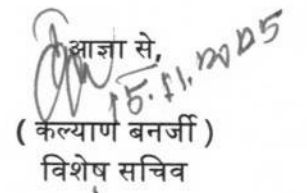 आज्ञा से,
15.11.2025
( कल्याण बनर्जी )
विशेष सचिव